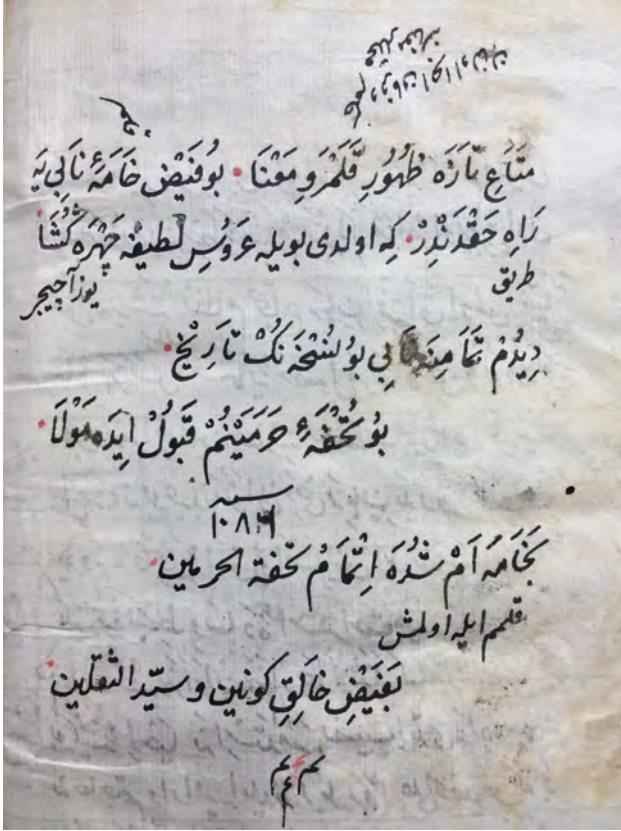 مَتَاعِ تَازَه ظُهُورِ قَلَمْرَوِ مَعْنَا بُو فَيْضِ خَامَۀِ نَابِي يَه
رَاهِ حَقْدَنْدِرْ كِه اولدى بويله عَرُوسِ لَطِيفْ چَهْرَه كُشَا
طريق
يوز آچيجى
دِيدُمْ تَمَامِنَه نَابِي بُو نُسْخَه نَكْ تَارِيْخْ
بُو تُحْفَۀِ حَرَمَيْنُمْ قَبُولْ اِيدَه مَوْلَا
سنه
بَخَامَه اَمْ شُدَه اِتْمَامُ تحفة الحرمين
قلمم ايله اولمش
بَفَيْضِ خَالِقِ كونين و سيّد الثقلين
تم تم تم